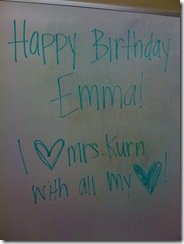 Happy Birthday
Emma!
I ♡ mrs. Kurn
with all my ♡!